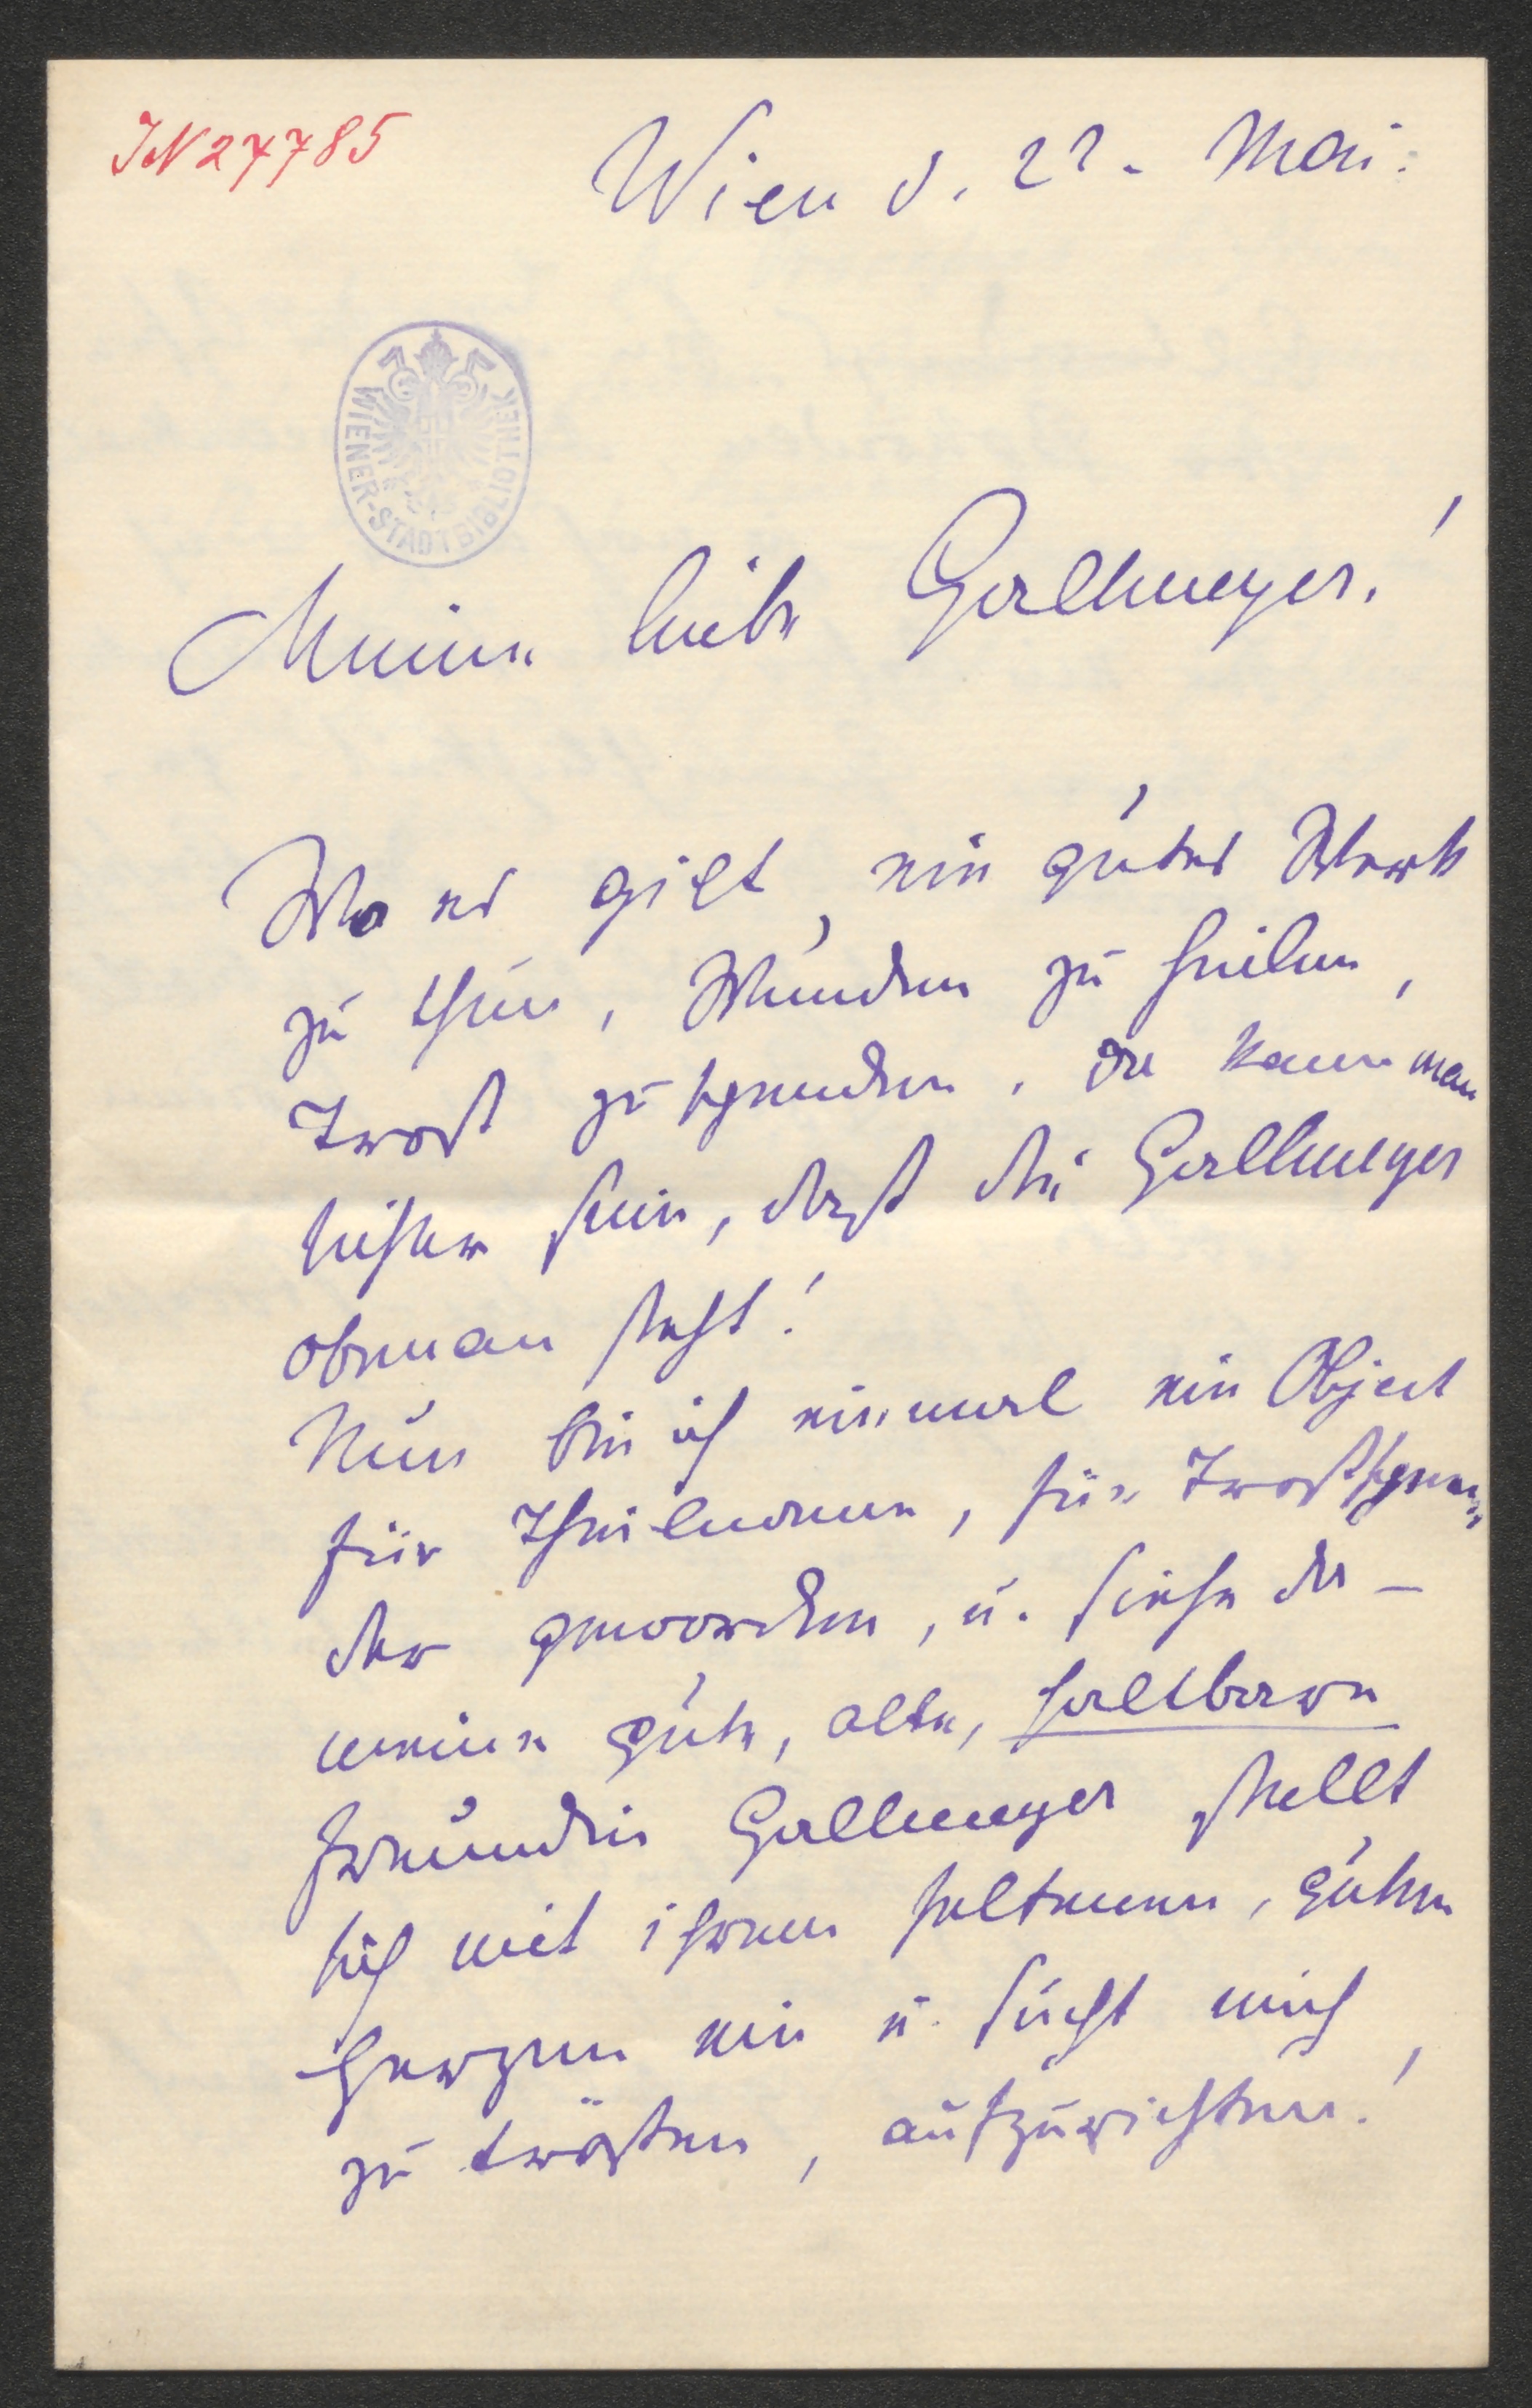 IN 27785
Wien d. 22. Mai.
WIENER-STADTBIBLIOTHEK
Meine liebe Gallmeyer!
Wo es gilt, ein gutes Werk
zu thun, Wunden zu heilen,
Trost zu spenden, da kann man
sicher sein, daß die Gallmeyer
obenan steht!
Nun bin ich einmal ein Object
für Theilname, für Trostspen-
der geworden, u. siehe da –
meine gute, alte, haltbare
Freundin Gallmeyer stellt
sich mit ihrem seltenen, guten
Herzen ein u. sucht mich,
zu trösten, aufzurichten!